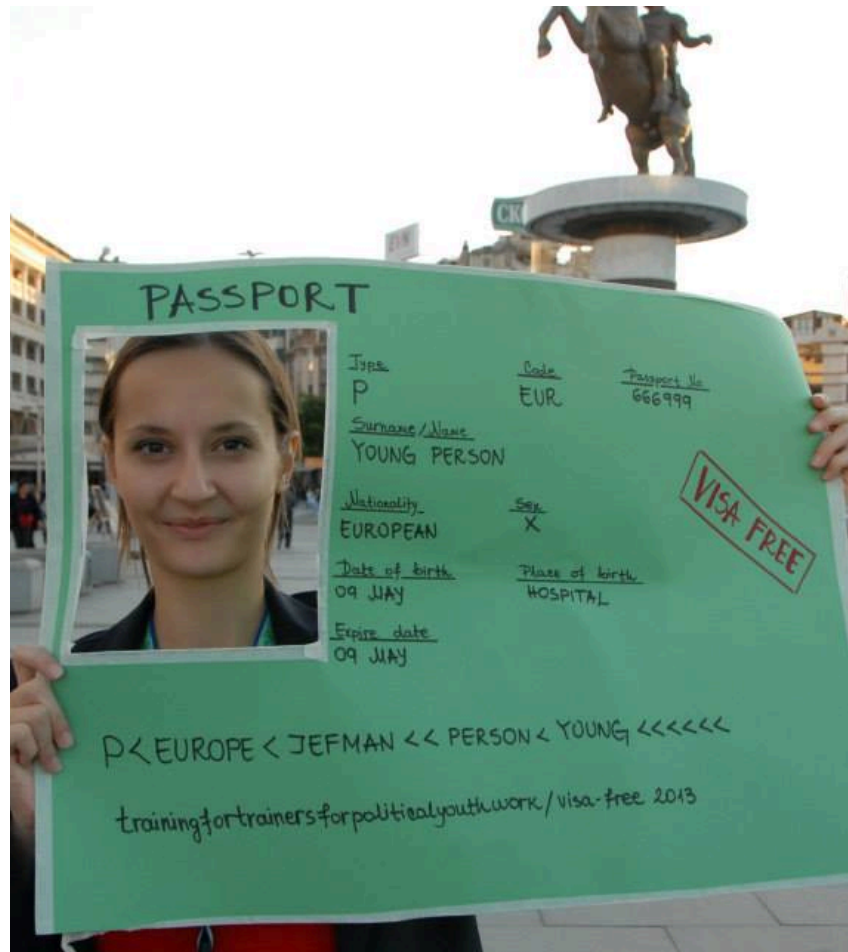 CK
PASSPORT
Type Code Passport No
P EUR 666999
Surname/Name
YOUNG PERSON
Nationality Sex
EUROPEAN X
VISA FREE
Date of birth Place of birth
09 MAY HOSPITAL
Expire date
09 MAY
P<EUROPE<JEFMAN<<PERSON<YOUNG<<<<<<
trainingfortrainersforpoliticalyouthwork/visa-free 2013